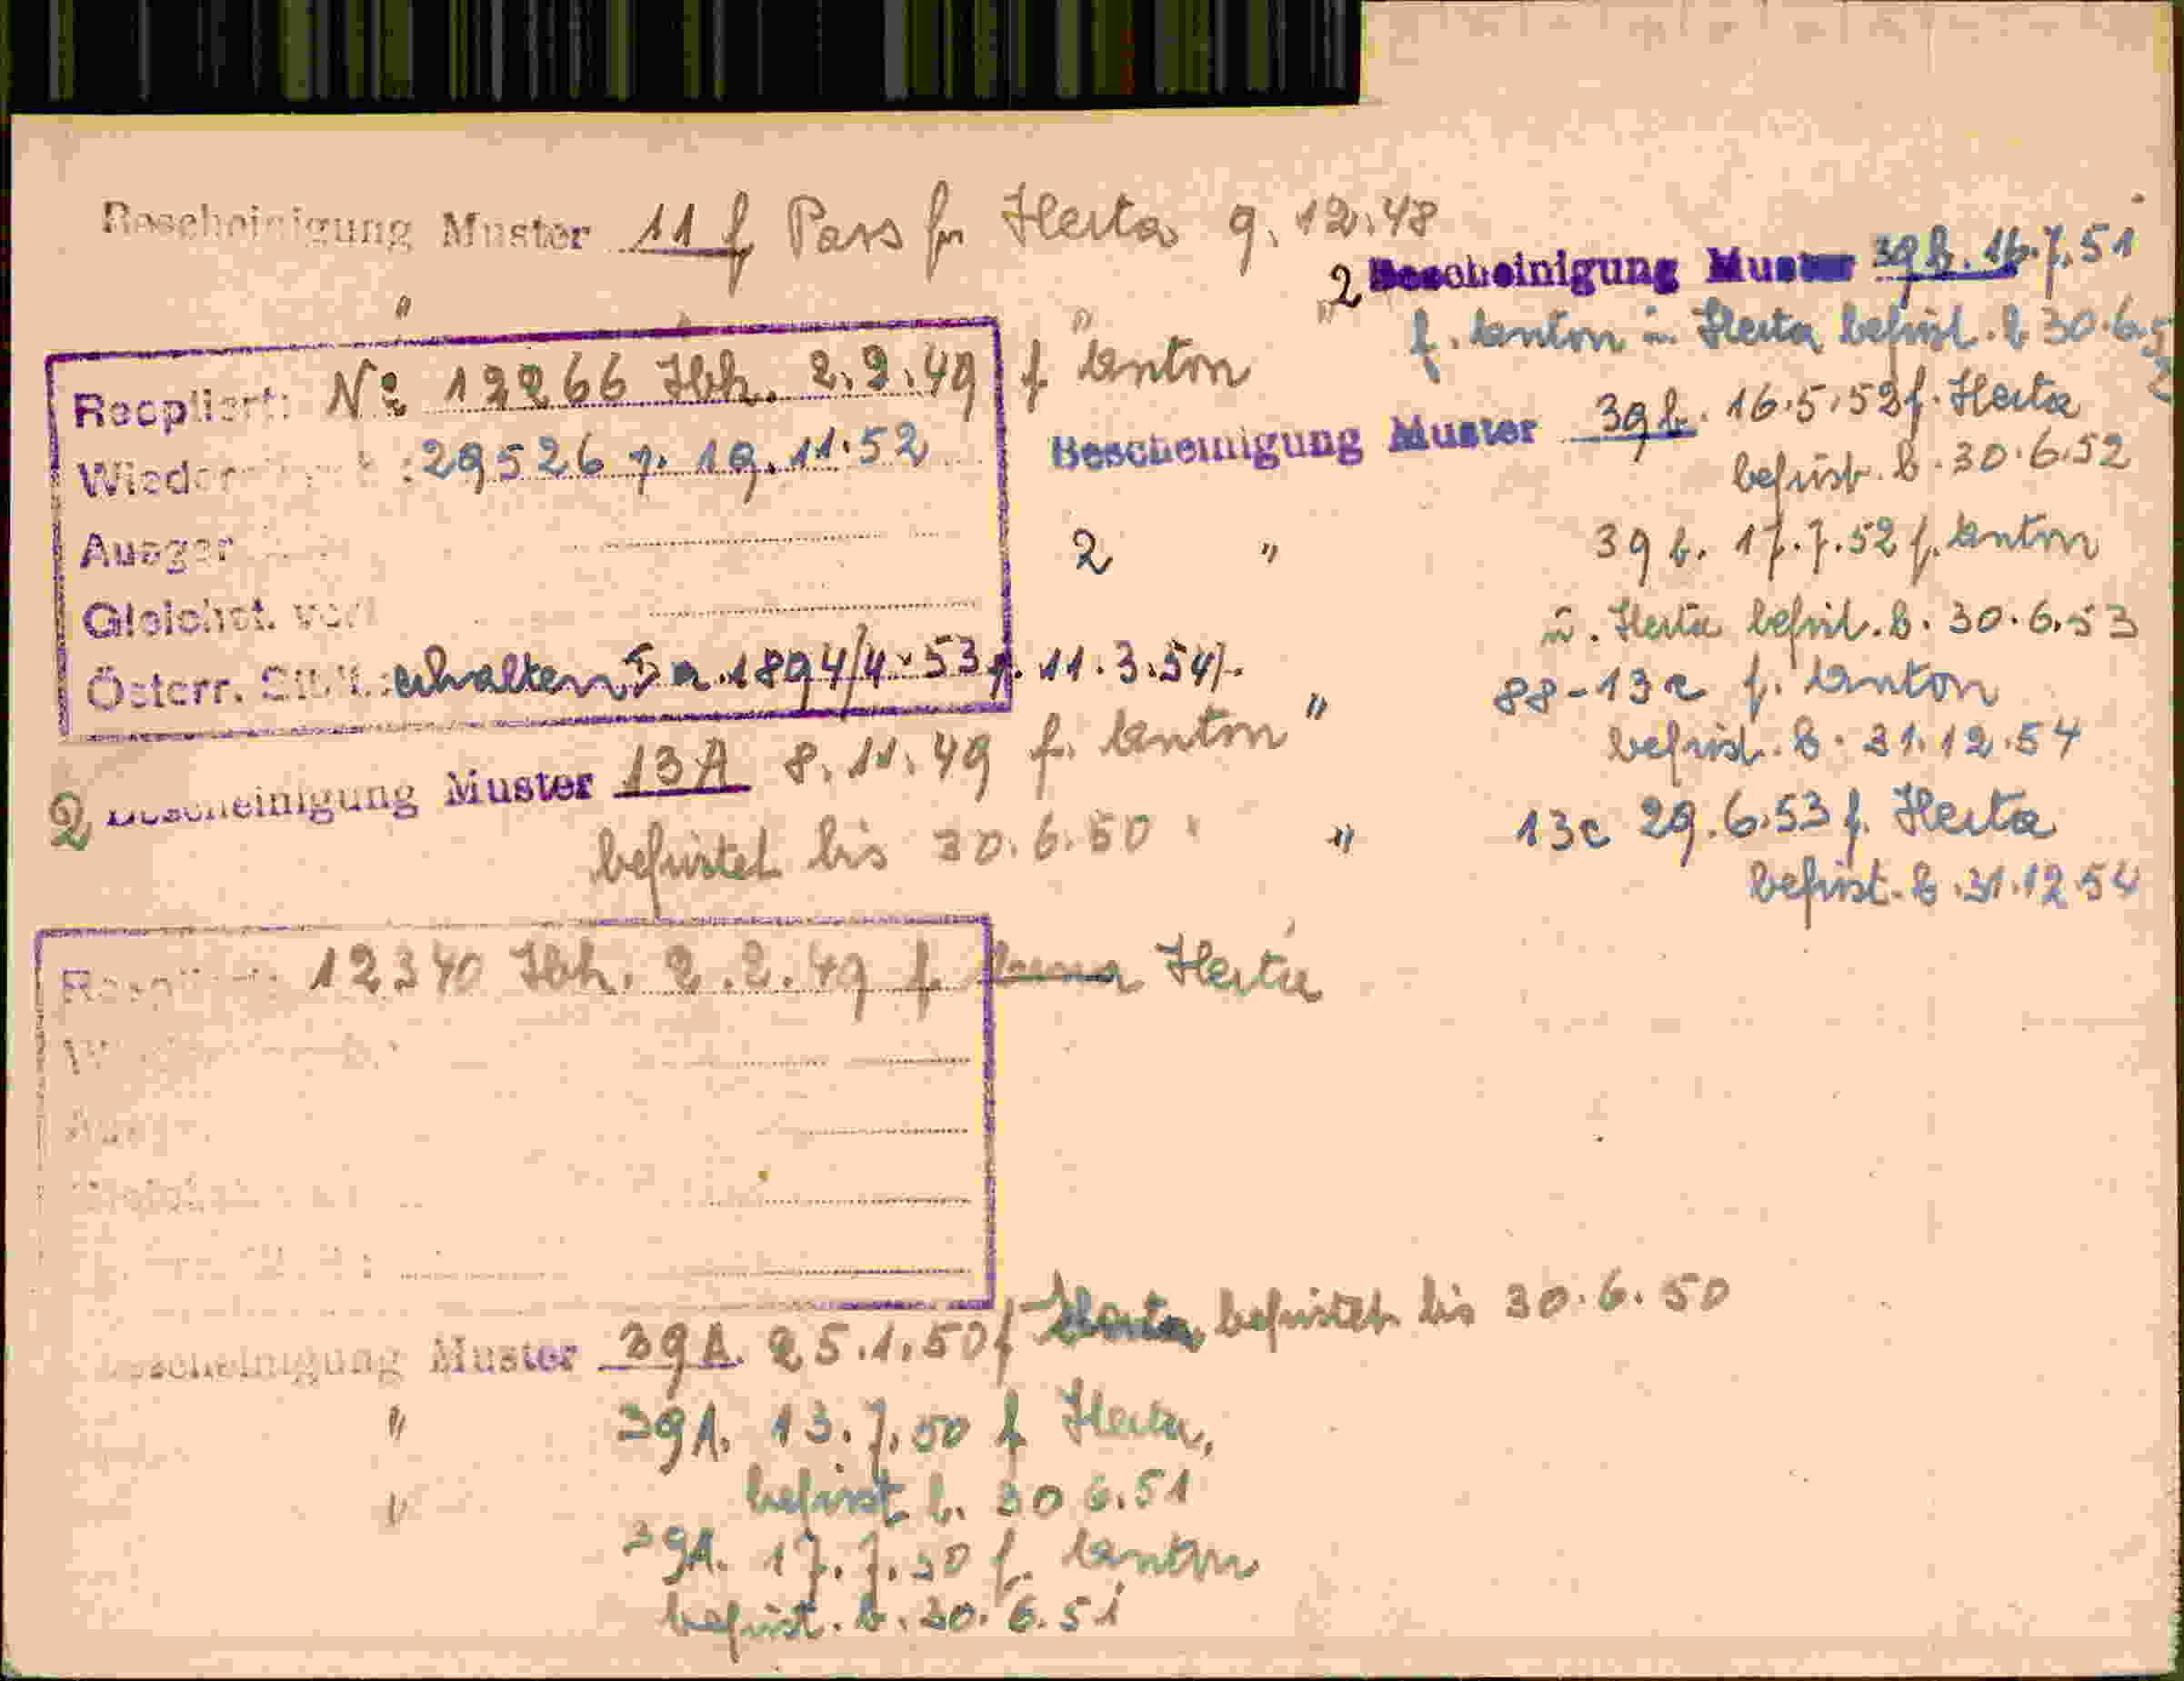 Bescheinigung Muster 11 f Pass für Herta 9.12.48
" " "
Reopliert: № 12266 Hbh. 2.2.49 f Anton
Wieder : 29526 v. 19.11.52
Ausger
Gleichst. verl
Österr. Stb.: erhalten Ia. 1894/4-53 v. 11.3.54.
2 Bescheinigung Muster 13A 8.11.49 f. Anton
befristet bis 30.6.50
12340 Hbh. 2.2.49 f. Herta
Bescheinigung Muster 39A. 25.1.50 f Herta befristet bis 30.6.50
" 39A. 13.7.50 f Herta,
befrist b. 30 6.51
" 39A. 17.7.50 f. Anton
befrist. b. 30.6.51
2 Bescheinigung Muster 39b. 16.7.51
f. Anton u. Herta befrist. b 30.6.5
Bescheinigung Muster 39b. 16.5.52 f. Herta
befrist. b. 30.6.52
2 " 39b. 17.7.52 f. Anton
u. Herta befrist. b. 30.6.53
" 88-13c f. Anton
befrist. b. 31.12.54
" 13c 29.6.53 f. Herta
befrist. b. 31.12.54